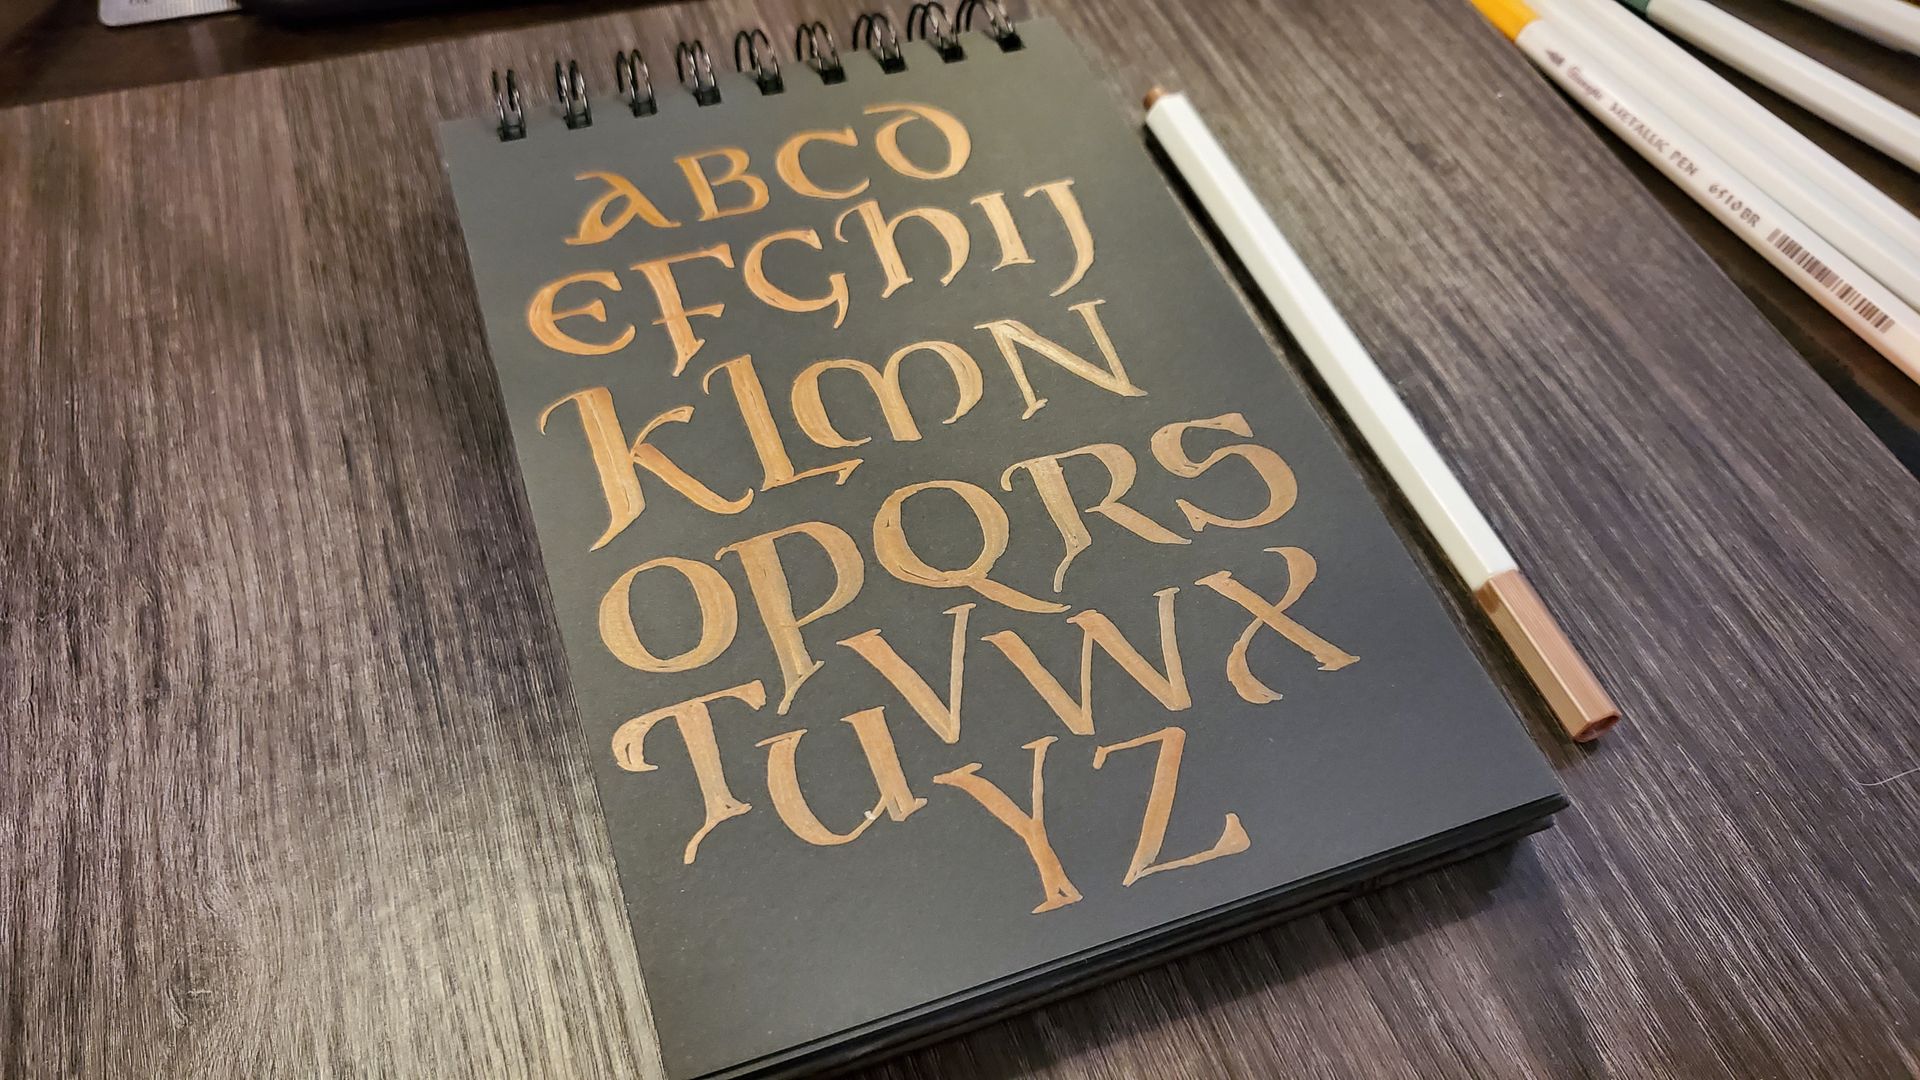 ABCD
EFGHIJ
KLMN
OPQRS
TUVWX
YZ
METALLIC PEN 6510BR